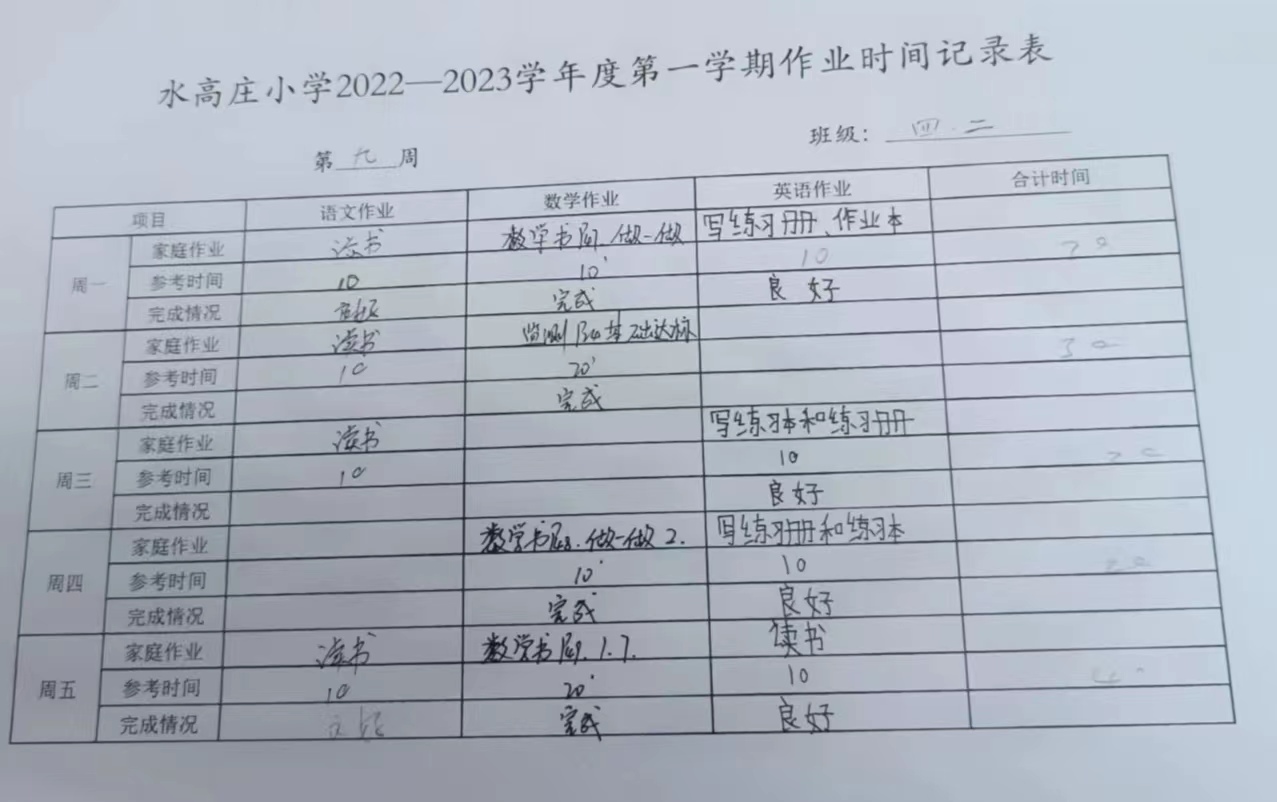 水高庄小学2022—2023学年度第一学期作业时间记录表
第 九 周 班级： 四.二
项目 语文作业 数学作业 英语作业 合计时间
周一 家庭作业 读书 数学书 做一做 写练习册、作业本
参考时间 10 10' 10
完成情况 完成 良好
周二 家庭作业 读书 监测 基础达标
参考时间 10 20' 30
完成情况 完成
周三 家庭作业 读书 写练习本和练习册
参考时间 10 10 20
完成情况 良好
周四 家庭作业 数学书 做一做 2. 写练习册和练习本
参考时间 10' 10 20
完成情况 完成 良好
周五 家庭作业 读书 数学书 1.7. 读书
参考时间 10 20' 10
完成情况 完成 良好